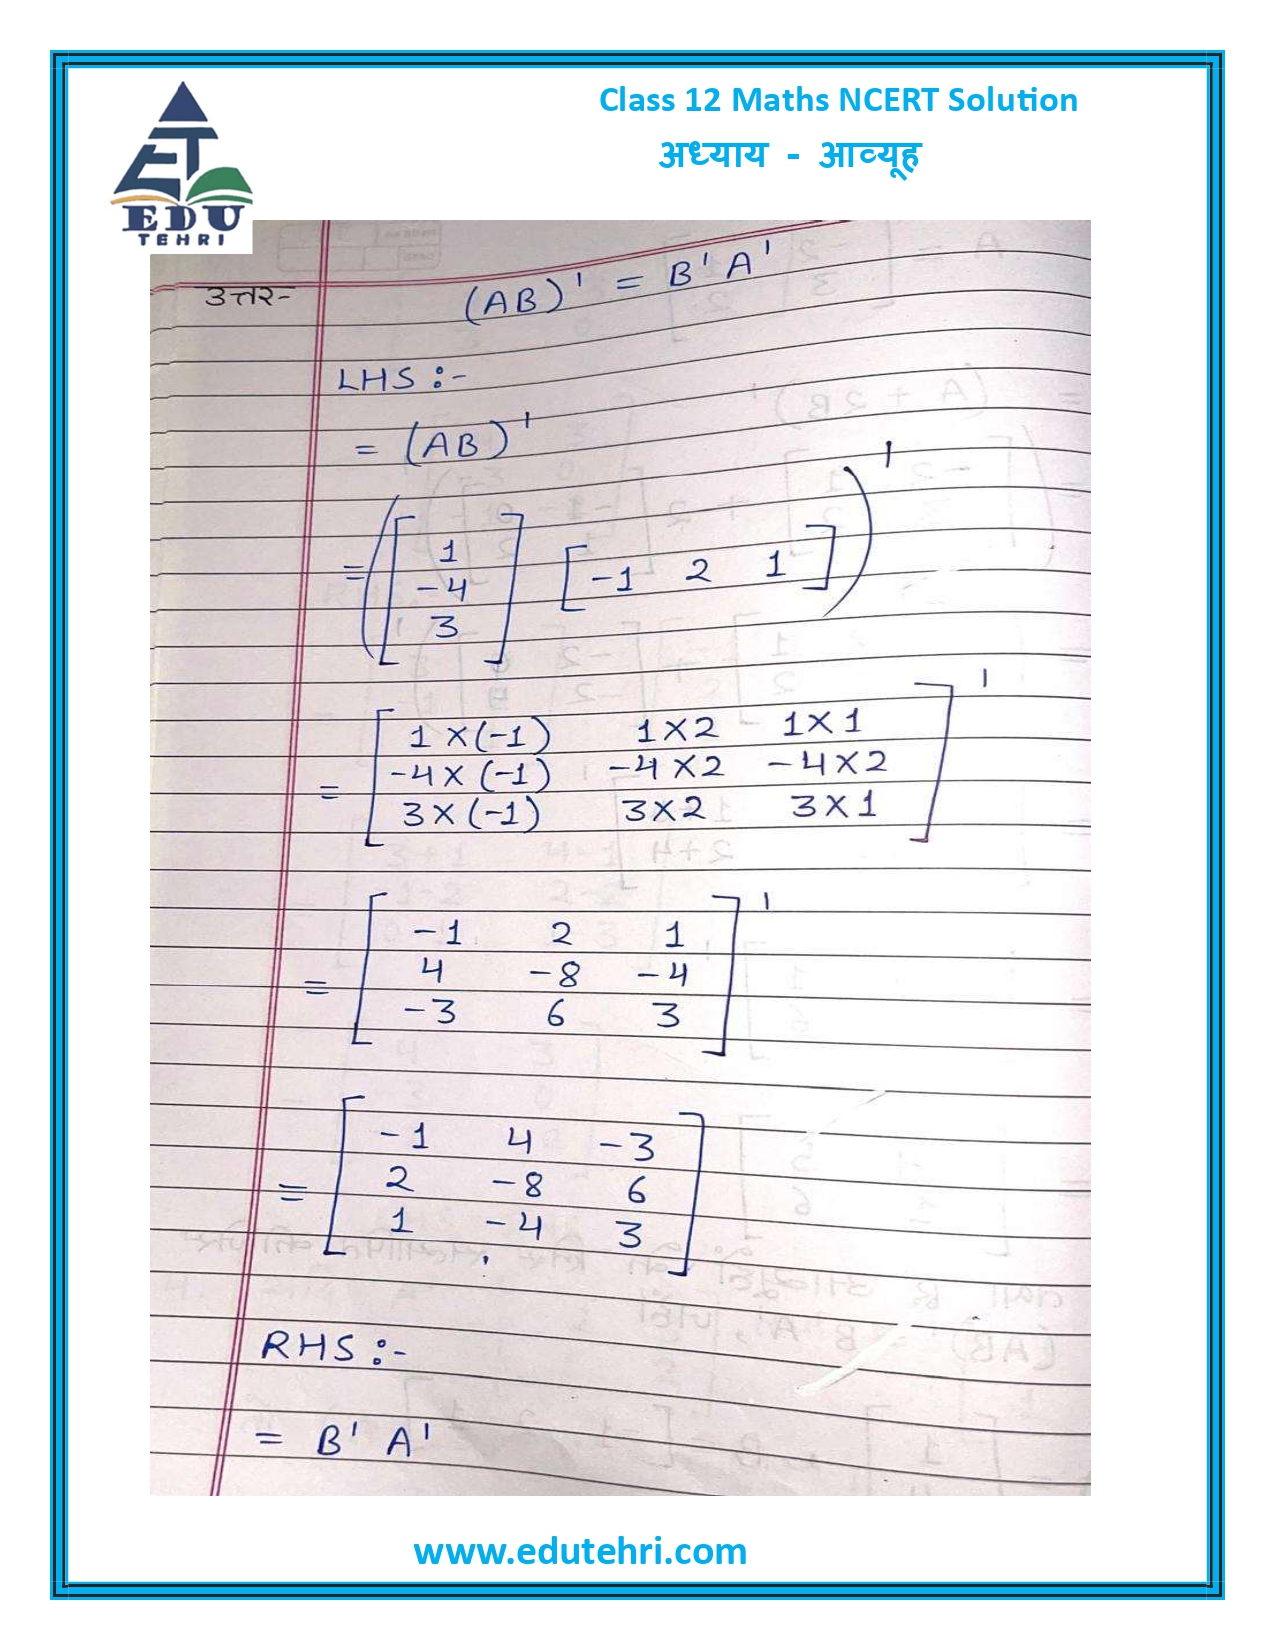 Class 12 Maths NCERT Solution
अध्याय - आव्यूह
EDU
TEHRI
उत्तर- (AB)' = B'A'
LHS :-
= (AB)'
= ([1 -4 3] [-1 2 1])'
= [1×(-1) 1×2 1×1
-4×(-1) -4×2 -4×2
3×(-1) 3×2 3×1]'
= [-1 2 1
4 -8 -4
-3 6 3]'
= [-1 4 -3
2 -8 6
1 -4 3]
RHS :-
= B' A'
www.edutehri.com